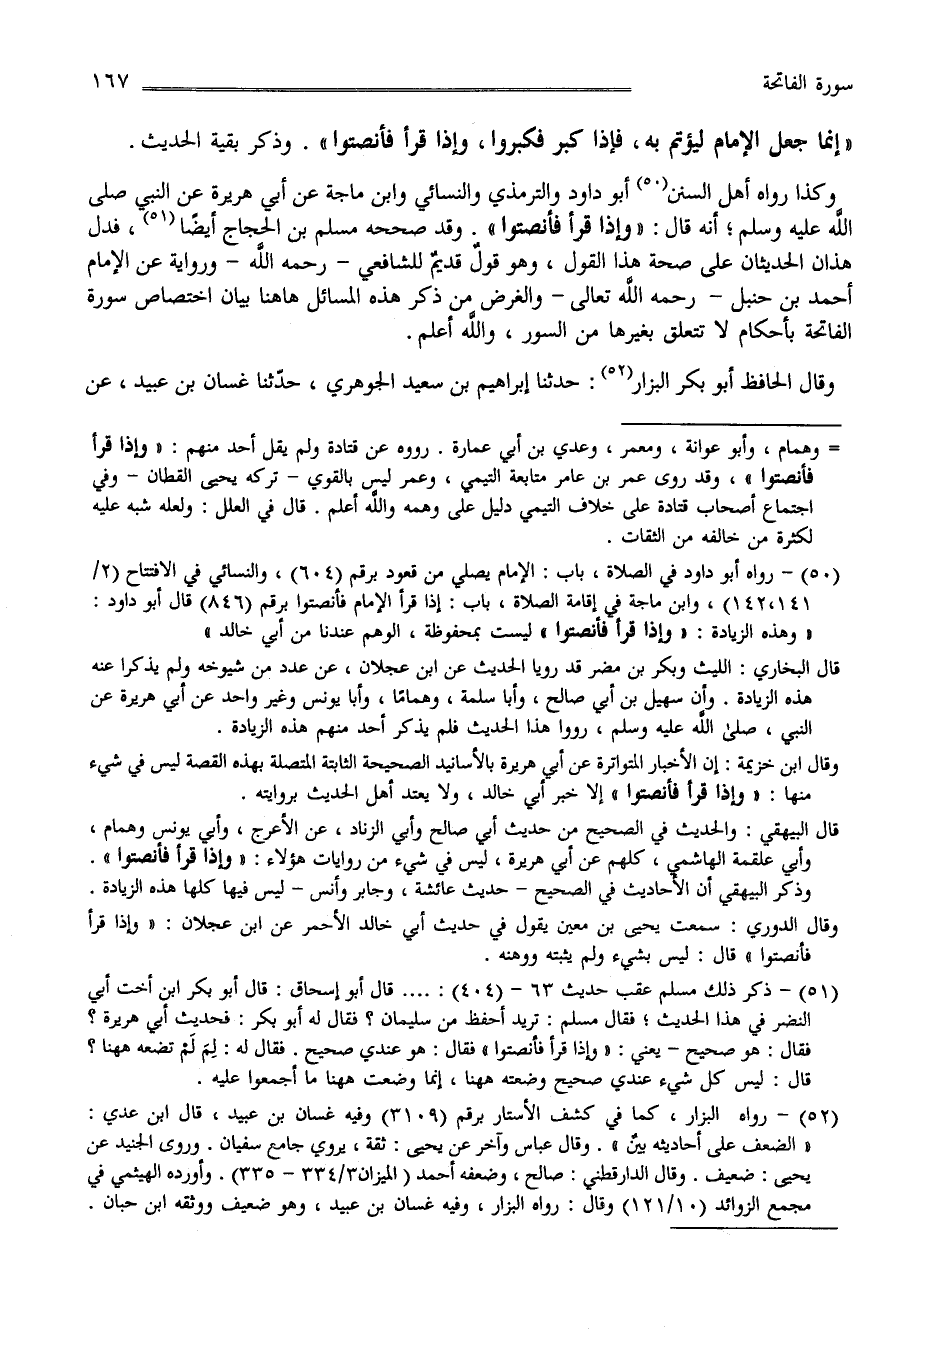 سورة الفاتحة ١٦٧
« إنما جعل الإمام ليؤتم به ، فإذا كبر فكبروا ، وإذا قرأ فأنصتوا » . وذكر بقية الحديث .
وكذا رواه أهل السنن(٥٠) أبو داود والترمذي والنسائي وابن ماجة عن أبي هريرة عن النبي صلى
اللَّه عليه وسلم ؛ أنه قال : « وإذا قرأ فأنصتوا » . وقد صححه مسلم بن الحجاج أيضًا(٥١) ، فدل
هذان الحديثان على صحة هذا القول ، وهو قولٌ قديمٌ للشافعي – رحمه اللَّه – ورواية عن الإمام
أحمد بن حنبل – رحمه اللَّه تعالى – والغرض من ذكر هذه المسائل هاهنا بيان اختصاص سورة
الفاتحة بأحكام لا تتعلق بغيرها من السور ، واللَّه أعلم .
وقال الحافظ أبو بكر البزار(٥٢) : حدثنا إبراهيم بن سعيد الجوهري ، حدّثنا غسان بن عبيد ، عن
= وهمام ، وأبو عوانة ، ومعمر ، وعدي بن أبي عمارة . رووه عن قتادة ولم يقل أحد منهم : « وإذا قرأ
فأنصتوا » ، وقد روى عمر بن عامر متابعة التيمي ، وعمر ليس بالقوي – تركه يحيى القطان – وفي
اجتماع أصحاب قتادة على خلاف التيمي دليل على وهمه واللَّه أعلم . قال في العلل : ولعله شبه عليه
لكثرة من خالفه من الثقات .
(٥٠) – رواه أبو داود في الصلاة ، باب : الإمام يصلي من قعود برقم (٦٠٤) ، والنسائي في الافتتاح (٢/
١٤٢،١٤١) ، وابن ماجة في إقامة الصلاة ، باب : إذا قرأ الإمام فأنصتوا برقم (٨٤٦) قال أبو داود :
« وهذه الزيادة : « وإذا قرأ فأنصتوا » ليست بمحفوظة ، الوهم عندنا من أبي خالد »
قال البخاري : الليث وبكر بن مضر قد رويا الحديث عن ابن عجلان ، عن عدد من شيوخه ولم يذكرا عنه
هذه الزيادة . وأن سهيل بن أبي صالح ، وأبا سلمة ، وهمامًا ، وأبا يونس وغير واحد عن أبي هريرة عن
النبي ، صلىٰ اللَّه عليه وسلم ، رووا هذا الحديث فلم يذكر أحد منهم هذه الزيادة .
وقال ابن خزيمة : إن الأخبار المتواترة عن أبي هريرة بالأسانيد الصحيحة الثابتة المتصلة بهذه القصة ليس في شيء
منها : « وإذا قرأ فأنصتوا » إلا خبر أبي خالد ، ولا يعتد أهل الحديث بروايته .
قال البيهقي : والحديث في الصحيح من حديث أبي صالح وأبي الزناد ، عن الأعرج ، وأبي يونس وهمام ،
وأبي علقمة الهاشمي ، كلهم عن أبي هريرة ، ليس في شيء من روايات هؤلاء : « وإذا قرأ فأنصتوا » .
وذكر البيهقي أن الأحاديث في الصحيح – حديث عائشة ، وجابر وأنس – ليس فيها كلها هذه الزيادة .
وقال الدوري : سمعت يحيى بن معين يقول في حديث أبي خالد الأحمر عن ابن عجلان : « وإذا قرأ
فأنصتوا » قال : ليس بشيء ولم يثبته ووهنه .
(٥١) – ذكر ذلك مسلم عقب حديث ٦٣ – (٤٠٤) : .... قال أبو إسحاق : قال أبو بكر ابن أخت أبي
النضر في هذا الحديث ؛ فقال مسلم : تريد أحفظ من سليمان ؟ فقال له أبو بكر : فحديث أبي هريرة ؟
فقال : هو صحيح – يعني : « وإذا قرأ فأنصتوا » فقال : هو عندي صحيح . فقال له : لِمَ لَمْ تضعه ههنا ؟
قال : ليس كل شيء عندي صحيح وضعته ههنا ، إنما وضعت ههنا ما أجمعوا عليه .
(٥٢) – رواه البزار ، كما في كشف الأستار برقم (٣١٠٩) وفيه غسان بن عبيد ، قال ابن عدي :
« الضعف على أحاديثه بينٌ » . وقال عباس وآخر عن يحيى : ثقة ، يروي جامع سفيان . وروى الجنيد عن
يحيى : ضعيف . وقال الدارقطني : صالح ، وضعفه أحمد ( الميزان٣٣٤/٣ – ٣٣٥) . وأورده الهيثمي في
مجمع الزوائد (١٢١/١٠) وقال : رواه البزار ، وفيه غسان بن عبيد ، وهو ضعيف ووثقه ابن حبان .